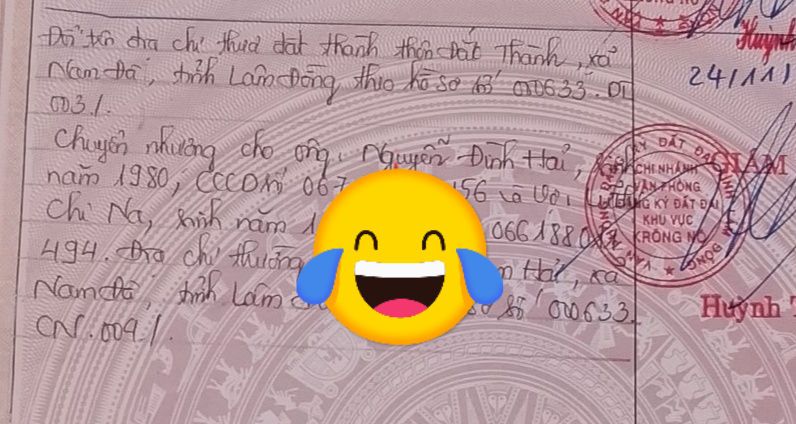 Huỳnh
24/11/
Đổi tên địa chỉ thửa đất thành thôn Đắt Thành, xã
Nam Đà, tỉnh Lâm Đồng theo hồ sơ số 000633.DL
003/.
Chuyển nhượng cho ông: Nguyễn Đình Hải, sinh
năm 1980, CCCD số 067 156 và với
Chi Na, sinh năm 1 0661880
494. Địa chỉ thường Hải, xã
Nam Đà, tỉnh Lâm số 000633.
CN.009/.
CHI NHÁNH
VĂN PHÒNG
ĐĂNG KÝ ĐẤT ĐAI
KHU VỰC
KRÔNG NÔ
GIÁM
Huỳnh T